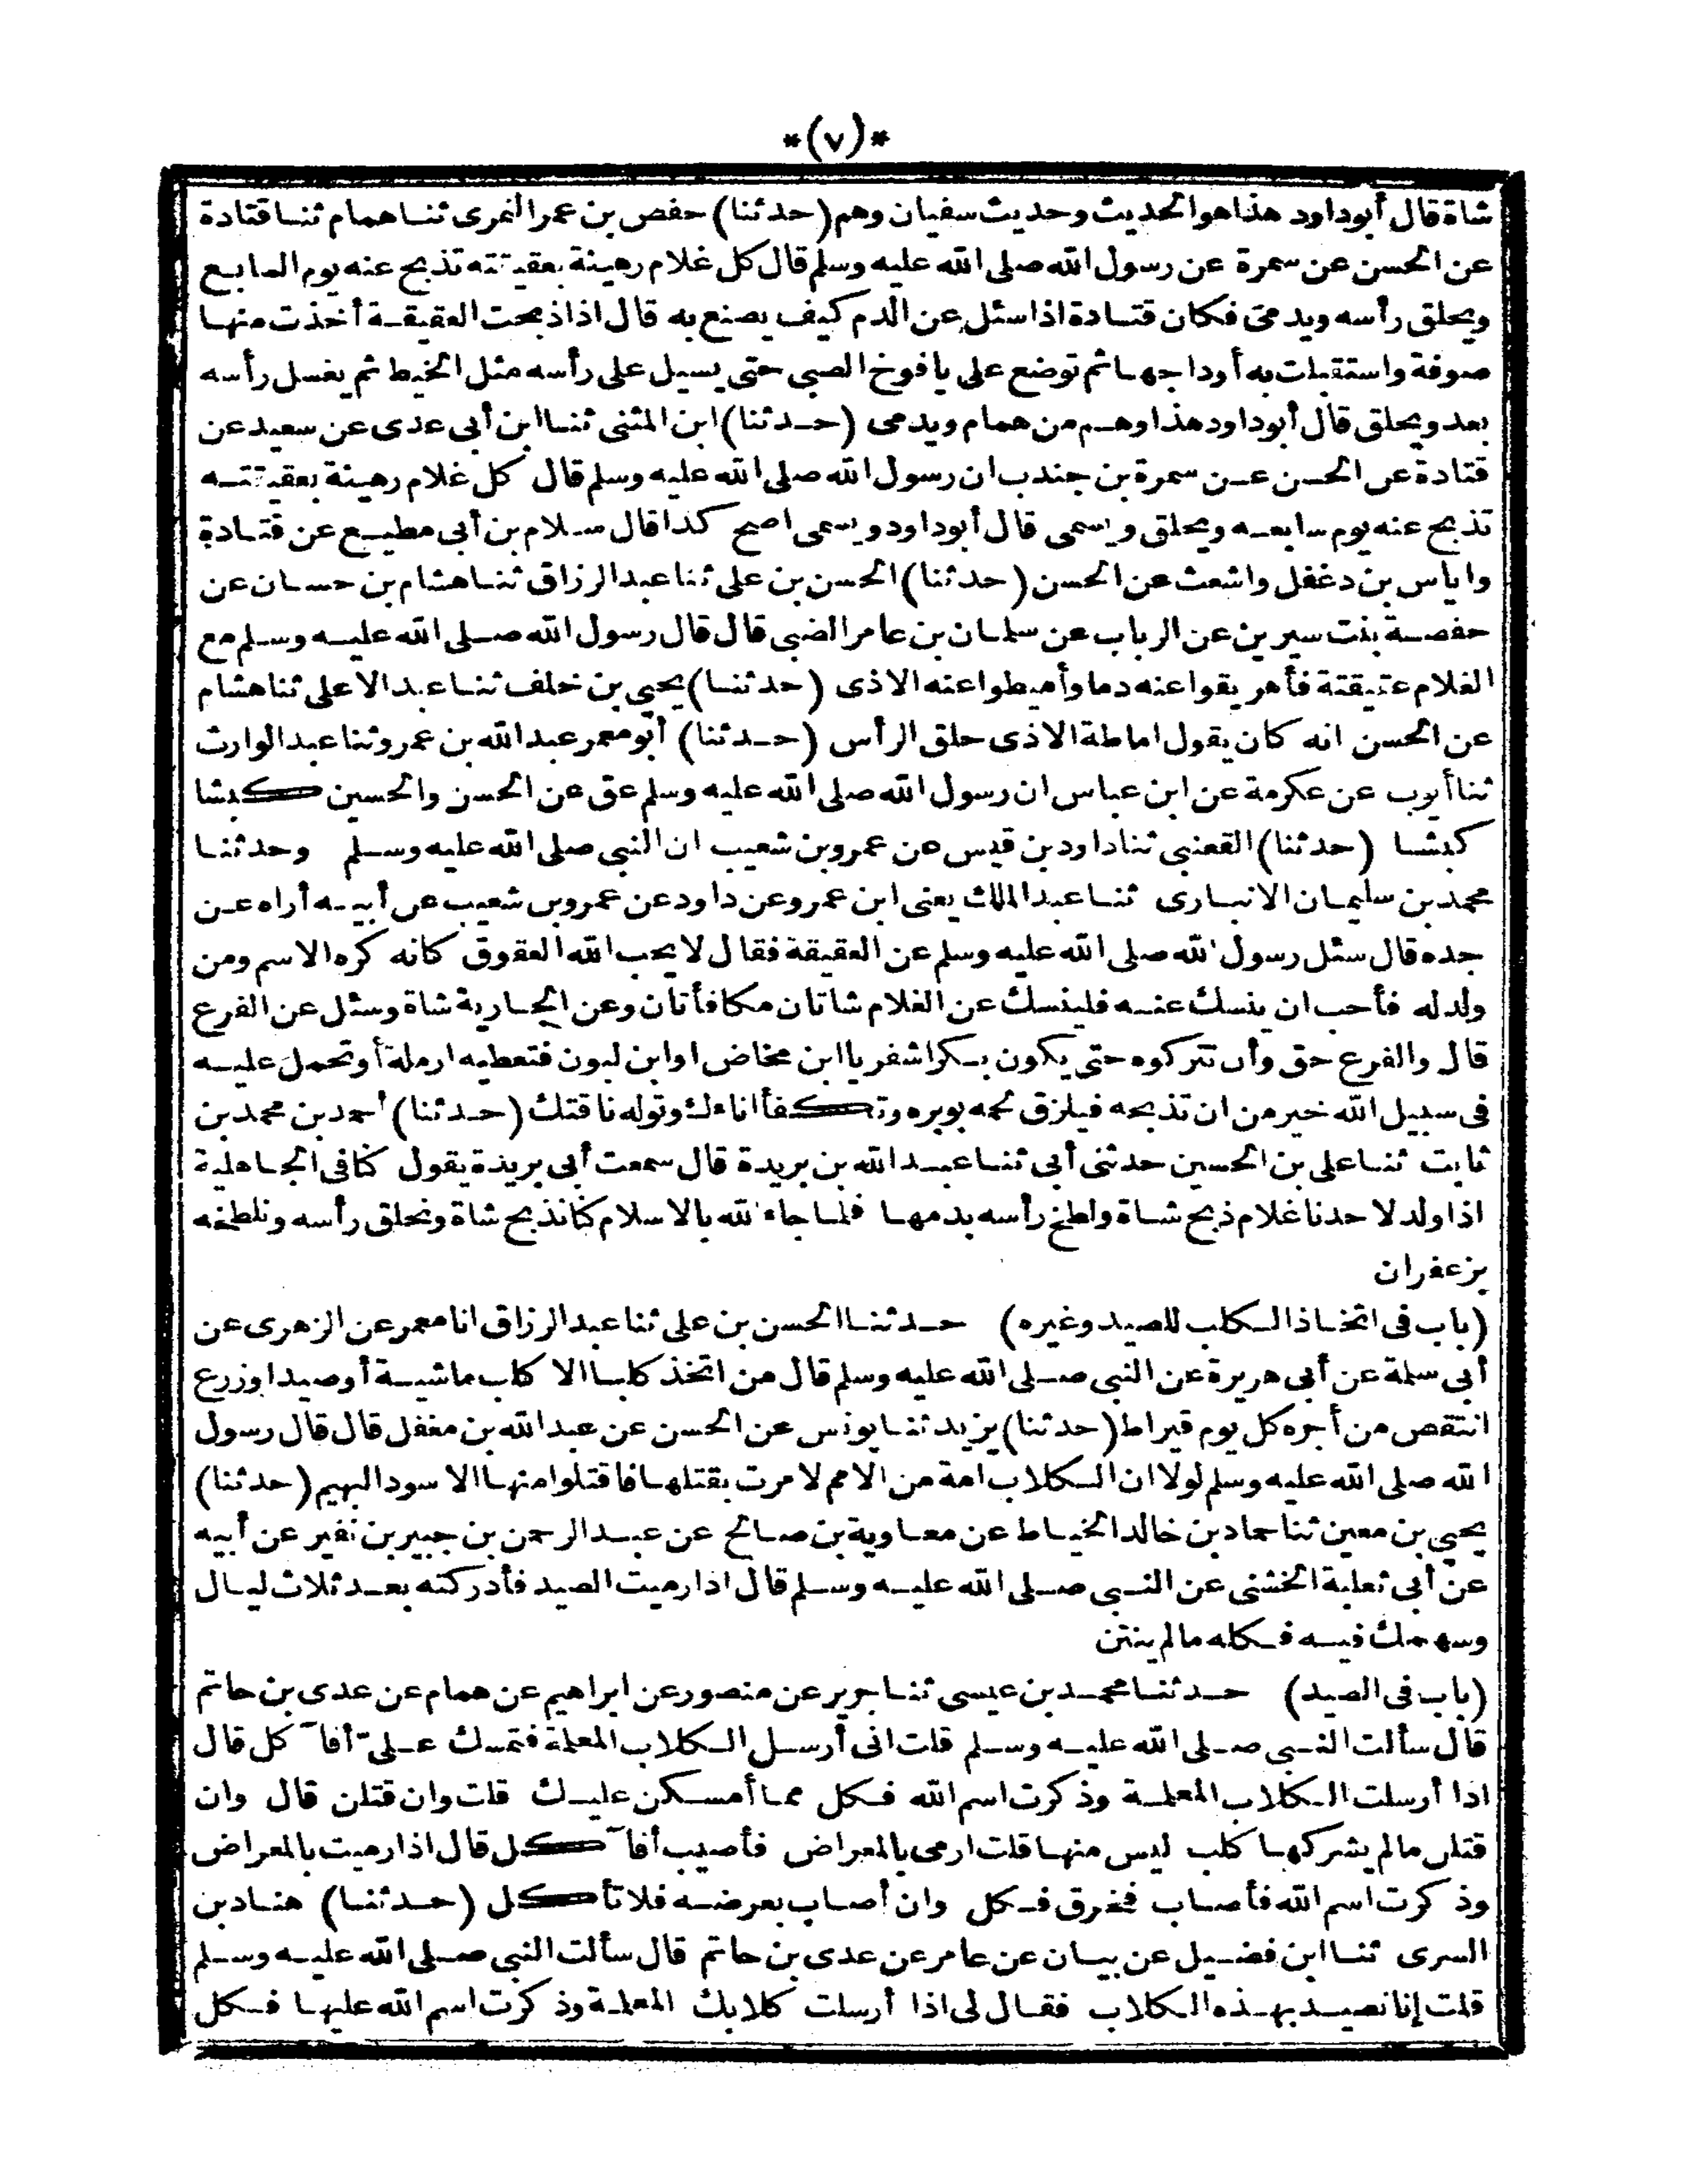 *(٧)*
شاة قال أبوداود هذا هو الحديث وحديث سفيان وهم (حدثنا) حفص بن عمر النمرى ثنا همام ثنا قتادة
عن الحسن عن سمرة عن رسول الله صلى الله عليه وسلم قال كل غلام رهينة بعقيقته تذبح عنه يوم السابع
ويحلق رأسه ويدمى فكان قتادة اذا سئل عن الدم كيف يصنع به قال اذا ذبحت العقيقة أخذت منها
صوفة واستقبلت به أوداجها ثم توضع على يافوخ الصبي حتى يسيل على رأسه مثل الخيط ثم يغسل رأسه
بعد ويحلق قال أبوداود هذا وهم من همام ويدمى (حدثنا) ابن المثنى ثنا ابن أبى عدى عن سعيد عن
قتادة عن الحسن عن سمرة بن جندب ان رسول الله صلى الله عليه وسلم قال كل غلام رهينة بعقيقته
تذبح عنه يوم سابعه ويحلق ويسمى قال أبوداود ويسمى اصح كذا قال سلام بن أبى مطيع عن قتادة
واياس بن دغفل واشعث عن الحسن (حدثنا) الحسن بن على ثنا عبد الرزاق ثنا هشام بن حسان عن
حفصة بنت سيرين عن الرباب عن سلمان بن عامر الضبى قال قال رسول الله صلى الله عليه وسلم مع
الغلام عقيقته فأهريقوا عنه دما وأميطوا عنه الاذى (حدثنا) يحيى بن خلف ثنا عبد الاعلى ثنا هشام
عن الحسن انه كان يقول اماطة الاذى حلق الرأس (حدثنا) أبو معمر عبد الله بن عمرو ثنا عبد الوارث
ثنا أيوب عن عكرمة عن ابن عباس ان رسول الله صلى الله عليه وسلم عق عن الحسن والحسين كبشا
كبشا (حدثنا) القعنبى ثنا داود بن قيس عن عمرو بن شعيب ان النبى صلى الله عليه وسلم وحدثنا
محمد بن سليمان الانبارى ثنا عبد الملك يعنى ابن عمرو عن داود عن عمرو بن شعيب عن أبيه أراه عن
جده قال سئل رسول الله صلى الله عليه وسلم عن العقيقة فقال لا يحب الله العقوق كانه كره الاسم ومن
ولد له فأحب ان ينسك عنه فلينسك عن الغلام شاتان مكافأتان وعن الجارية شاة وسئل عن الفرع
قال والفرع حق وأن تتركوه حتى يكون بكرا شغريا ابن مخاض او ابن لبون فتعطيه ارملة أو تحمل عليه
فى سبيل الله خير من ان تذبحه فيلزق لحمه بوبره وتكفأ اناءك وتوله ناقتك (حدثنا) أحمد بن محمد بن
ثابت ثنا على بن الحسين حدثنى أبى ثنا عبد الله بن بريدة قال سمعت أبى بريدة يقول كنا فى الجاهلية
اذا ولد لاحدنا غلام ذبح شاة ولطخ رأسه بدمها فلما جاء الله بالاسلام كنا نذبح شاة ونحلق رأسه ونلطخه
بزعفران
(باب فى اتخاذ الكلب للصيد وغيره) حدثنا الحسن بن على ثنا عبد الرزاق انا معمر عن الزهرى عن
أبى سلمة عن أبى هريرة عن النبى صلى الله عليه وسلم قال من اتخذ كلبا الا كلب ماشية أو صيد او زرع
انتقص من أجره كل يوم قيراط (حدثنا) يزيد ثنا يونس عن الحسن عن عبد الله بن مغفل قال قال رسول
الله صلى الله عليه وسلم لولا ان الكلاب امة من الامم لامرت بقتلها فاقتلوا منها الاسود البهيم (حدثنا)
يحيى بن معين ثنا حماد بن خالد الخياط عن معاوية بن صالح عن عبد الرحمن بن جبير بن نفير عن أبيه
عن أبى ثعلبة الخشنى عن النبى صلى الله عليه وسلم قال اذا رميت الصيد فأدركته بعد ثلاث ليال
وسهمك فيه فكله مالم ينتن
(باب فى الصيد) حدثنا محمد بن عيسى ثنا جرير عن منصور عن ابراهيم عن همام عن عدى بن حاتم
قال سألت النبى صلى الله عليه وسلم قلت انى أرسل الكلاب المعلمة فتمسك علىّ أفآكل قال
اذا أرسلت الكلاب المعلمة وذكرت اسم الله فكل مما أمسكن عليك قلت وان قتلن قال وان
قتلن مالم يشركها كلب ليس منها قلت ارمى بالمعراض فأصيب أفآكل قال اذا رميت بالمعراض
وذكرت اسم الله فأصاب فخرق فكل وان أصاب بعرضه فلا تأكل (حدثنا) هناد بن
السرى ثنا ابن فضيل عن بيان عن عامر عن عدى بن حاتم قال سألت النبى صلى الله عليه وسلم
قلت إنا نصيد بهذه الكلاب فقال لى اذا أرسلت كلابك المعلمة وذكرت اسم الله عليها فكل